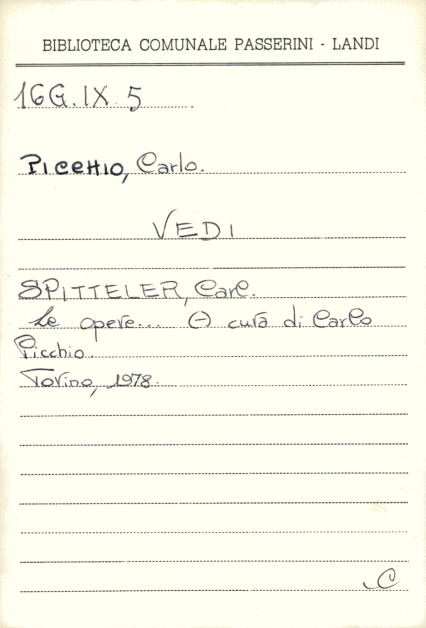 BIBLIOTECA COMUNALE PASSERINI - LANDI
16G.IX.5
PICCHIO, Carlo.
VEDI
SPITTELER, Carl.
Le opere... (-) cura di Carlo
Picchio.
Torino, 1978.
C